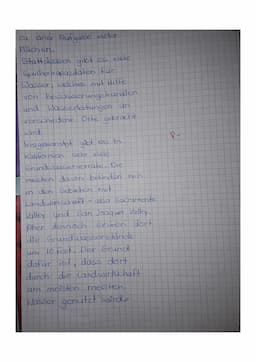 zu einer Aufgabe meter
Flächen.
Stattdessen gibt es viele
Speicherkapazitäten für
Wasser, welches mit Hilfe
von Bewässerungskanälen
und Wasserleitungen an
verschiedene Orte gebracht
wird.
Insgesamt gibt es in
Kalifornien sehr viele
Grundwasservorräte. Die
meisten davon befinden sich
in den Gebieten mit
Landwirtschaft - also Sacramento
Valley und San Joaquin Valley.
Aber dennoch sinken dort
die Grundwasserstände
um 10 feet. Der Grund
dafür ist, dass dort
durch die Landwirtschaft
am meisten
Wasser genutzt wurde